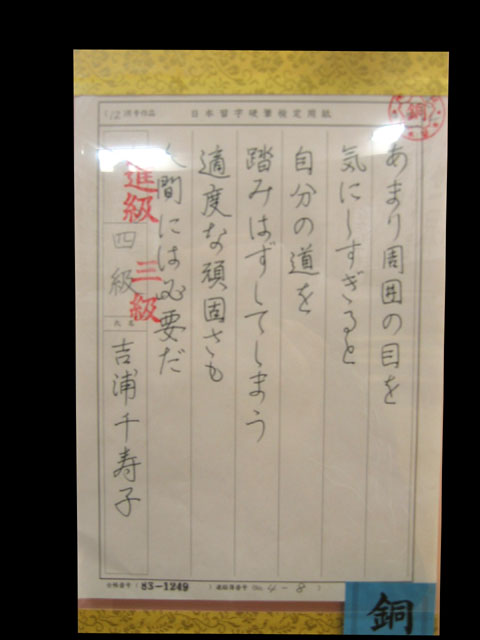 (12)月号作品
日本習字硬筆検定用紙
銅
あまり周囲の目を
気にしすぎると
自分の道を
踏みはずしてしまう
適度な頑固さも
人間には必要だ
進級 三級
四級
氏名
吉浦千寿子
会員番号 ( 83-1249 )
連絡簿番号 (No. 4-8 )
銅